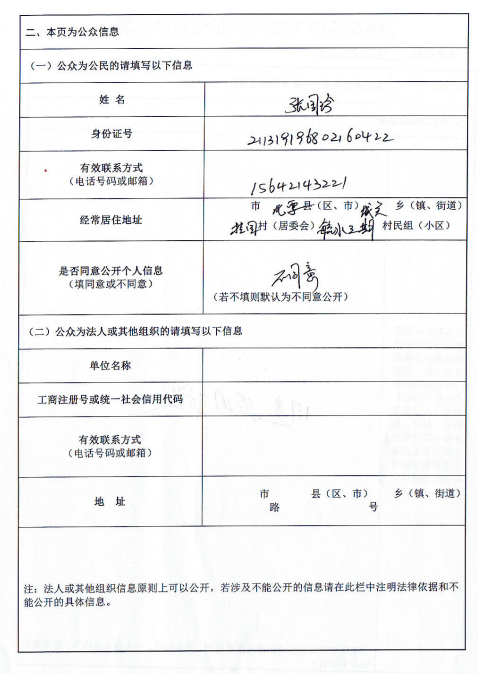 二、本页为公众信息
（一）公众为公民的请填写以下信息
姓 名
张国玲
身份证号
211319196802160422
有效联系方式
（电话号码或邮箱）
15642143221
经常居住地址
市 北票县（区、市） 城关 乡（镇、街道）
桂园村（居委会） 三期 村民组（小区）
是否同意公开个人信息
（填同意或不同意）
不同意
（若不填则默认为不同意公开）
（二）公众为法人或其他组织的请填写以下信息
单位名称
工商注册号或统一社会信用代码
有效联系方式
（电话号码或邮箱）
地 址
市 县（区、市） 乡（镇、街道）
路 号
注：法人或其他组织信息原则上可以公开，若涉及不能公开的信息请在此栏中注明法律依据和不
能公开的具体信息。